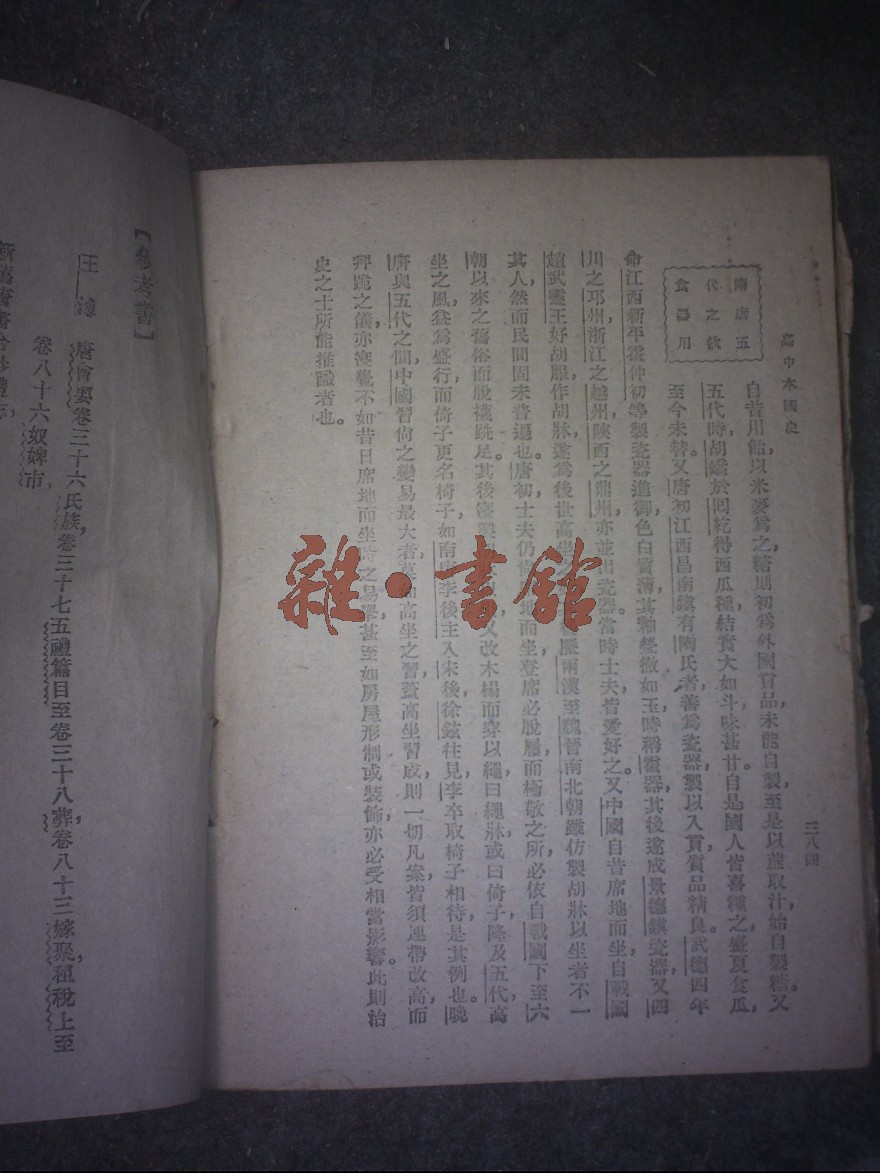 高中本國史
三八四
隋唐五
代之飲
食器用
自昔用飴，以米麥爲之，糖則初爲外國貢品，未能自製，至是以蔗取汁，始自製糖。又
五代時，胡嶠於囘紇得西瓜種，結實大如斗，味甚甘，自是國人皆喜種之，盛夏食瓜，
至今未替。又唐初江西昌南鎮有陶氏者，善爲瓷器，製以入貢，質品精良。武德四年
命江西新平霍仲初等製瓷器進御，色白質薄，其釉瑩徹如玉，時稱霍器，其後遂成景德鎮瓷器。又四
川之邛州，浙江之越州，陝西之鼎州，亦並出瓷器。當時士夫，皆愛好之。又中國自昔席地而坐，自戰國
趙武靈王好胡服，作胡牀，遂爲後世高坐之 歷兩漢至魏晉南北朝，雖仿製胡牀以坐者，不一
其人，然而民間固未普遍也。唐初士夫仍 地而坐，登席必脫履，而極敬之所，必依自戰國下至六
朝以來之舊俗而脫襪跣足。其後寖興 又改木榻而穿以繩，曰繩牀，或曰倚子，降及五代，高
坐之風益爲盛行，而倚子更名椅子，如南 李後主入宋後，徐鉉往見，李卒取椅子相待，是其例也。晚
唐與五代之間，中國習尙之變易最大者，莫如高坐之習，蓋高坐習成，則一切凡案，皆須連帶改高，而
拜跪之儀，亦寖覺不如昔日席地而坐時之易舉，甚至如房屋形制或裝飾，亦必受相當影響。此則治
史之士所能推識者也。
雜·書館
【參考書】
王 溥 唐會要卷三十六氏族，卷三十七五禮篇目至卷三十八葬，卷八十三嫁娶，租稅上至
卷八十六奴婢，市，
新舊唐書合鈔禮志，